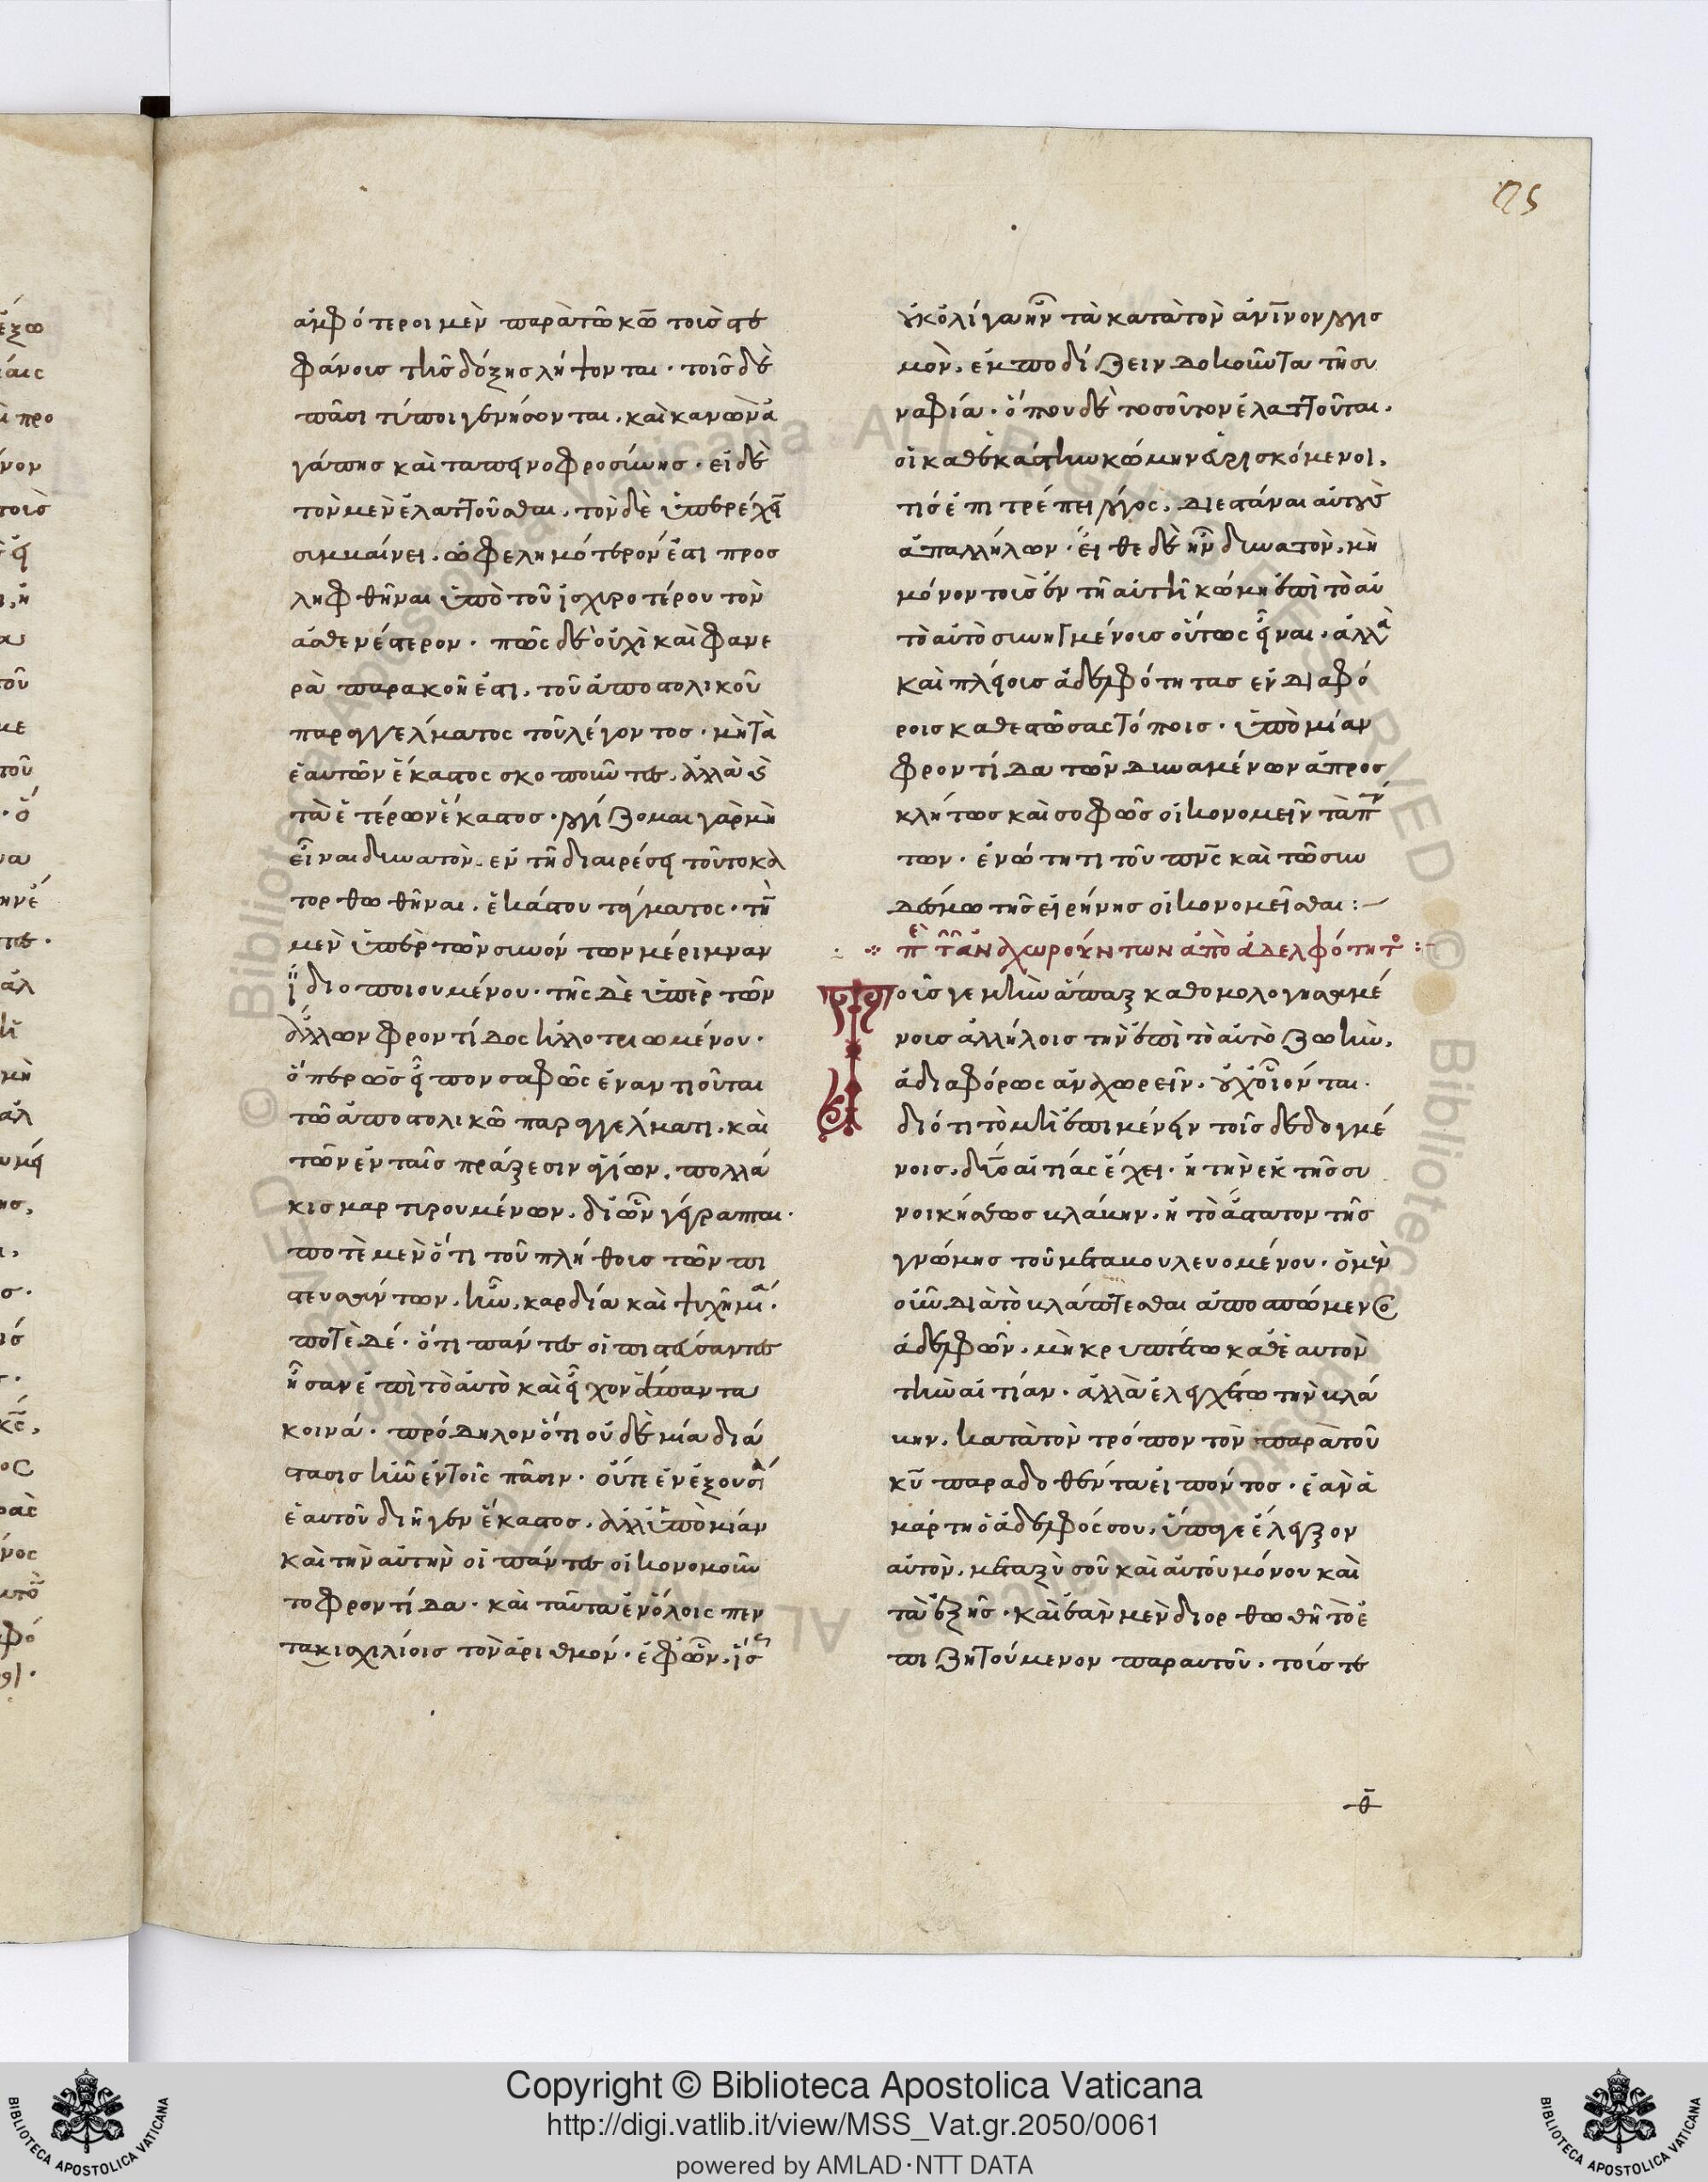 ἀμφότεροι μὲν παρὰ τῶ κω̅ τοῖς στε
φάνοις τῆς δόξης λήψονται· τοῖς δὲ
πᾶσι τύποι γενήσονται, καὶ κανὼν ἀ
γάπης καὶ ταπεινοφροσύνης· εἰ δὲ
τὸν μὲν ἐλαττοῦσθαι, τὸν δὲ ὑπερέχειν
συμμαίνει, ὠφελημότερόν ἐστι προσ
ληφθῆναι ὑπὸ τοῦ ἰσχυροτέρου τὸν
ἀσθενέστερον· πῶς δὲ οὐχὶ καὶ φανε
ρὰ παρακοή ἐστι, τοῦ ἀποστολικοῦ
παραγγέλματος τοῦ λέγοντος· μὴ τὰ
ἑαυτῶν ἕκαστος σκοποῦντες, ἀλλὰ καὶ
τὰ ἑτέρων ἕκαστος· λογίζομαι γὰρ μὴ
εἶναι δυνατὸν ἐν τῆ διαιρέσει τοῦτο κα
τορθωθῆναι, ἑκάστου τάγματος· τὴν
μὲν ὑπὲρ τῶν συνόντων μέριμναν
ἰδιοποιουμένου· τῆς δὲ ὑπὲρ τῶν
ἄλλων φροντίδος ἠλλοτριωμένου·
ὅπερ ὡς εἶπον σαφῶς ἐναντιοῦται
τῶ ἀποστολικῶ παραγγέλματι, καὶ
τῶν ἐν ταῖς πράξεσιν ἁγίων, πολλά
κις μαρτυρουμένων, δι' ὧν γέγραπται·
ποτὲ μὲν ὅτι τοῦ πλήθους τῶν πι
στευσάντων, ἦν, καρδία καὶ ψυχὴ μία·
ποτὲ δέ· ὅτι πάντες οἱ πιστεύσαντες
ἦσαν ἐπὶ τὸ αὐτὸ καὶ εἶχον ἅπαντα
κοινά· πρόδηλον ὅτι οὐδὲ μία διά
στασις ἦν ἐν τοῖς πᾶσιν· οὔτε ἐν ἐξουσία
ἑαυτοῦ διῆγεν ἕκαστος, ἀλλ' ὑπὸ μίαν
καὶ τὴν αὐτὴν οἱ πάντες οἰκονομοῦν
το φροντίδα· καὶ ταῦτα ἐν ὅλοις πεν
τακισχιλίοις τὸν ἀριθμόν· ἐφ' ὧν, ἴσως
οὐκ ὀλίγα ἦν τὰ κατὰ τὸν ἀν̅ινον λογισ
μὸν, ἐμποδίζειν δοκοῦντα τῆ συ
ναφία· ὅπου δὲ τοσοῦτον ἐλαττοῦται,
οἱ καθ' ἑκάστην κώμην εὑρισκόμενοι,
τίς ἐπιτρέπει λόγος, διεστάναι αὐτοὺς
ἀπ' ἀλλήλων· εἴθε δὲ ἦν δυνατὸν, μὴ
μόνον τοὺς ἐν τῆ αὐτῆ κώμη ἐπὶ τὸ αὐ
τὸ αὐτὸ συνηγμένοις οὕτως εἶναι, ἀλλὰ
καὶ πλείοις ἀδελφότητας ἐν διαφό
ροις καθεστώσας τόποις· ὑπὸ μίαν
φροντίδα τῶν δυναμένων ἀπροσ
κλήτως καὶ σοφῶς οἰκονομεῖν τὰ πάν
των· ἑνότητι τοῦ πν̅ς καὶ τῶ συν
δέσμω τῆς εἰρήνης οἰκονομεῖσθαι:–
πὲ τῶν ἀναχωρούντων ἀπὸ ἀδελφότητος:–
Τοῖς γε μὴν ἅπαξ καθομολογησαμέ
νοις ἀλλήλοις τὴν ἐπὶ τὸ αὐτὸ ζωὴν,
ἀδιαφόρως ἀναχωρεῖν, οὐχ οἷόν ται·
διότι τὸ μὴ ἐπιμένειν τοῖς δεδογμέ
νοις, δύο αἰτίας ἔχει· ἢ τὴν ἐκ τῆς συ
νοικήσεως βλάβην, ἢ τὸ ἄστατον τῆς
γνώμης τοῦ μεταβουλευομένου· ὁ μὲν
οὖν διὰ τὸ βλάπτεσθαι ἀποστώμενος
ἀδελφῶν, μὴ κρυπτέτω καθ' ἑαυτὸν
τὴν αἰτίαν· ἀλλὰ ἐλεγχέτω τὴν βλά
βην, κατὰ τὸν τρόπον τὸν παρὰ τοῦ
κυ̅ παραδοθέντα εἰπόντος· ἐὰν ἁ
μάρτη ὁ ἀδελφός σου, ὕπαγε ἔλεγξον
αὐτὸν, μεταξὺ σοῦ καὶ αὐτοῦ μόνου καὶ
τὰ ἑξῆς· καὶ ἐὰν μὲν διορθωθῆ τὸ ἐ
πιζητούμενον παρ' αὐτοῦ, τούς τε
θ̅